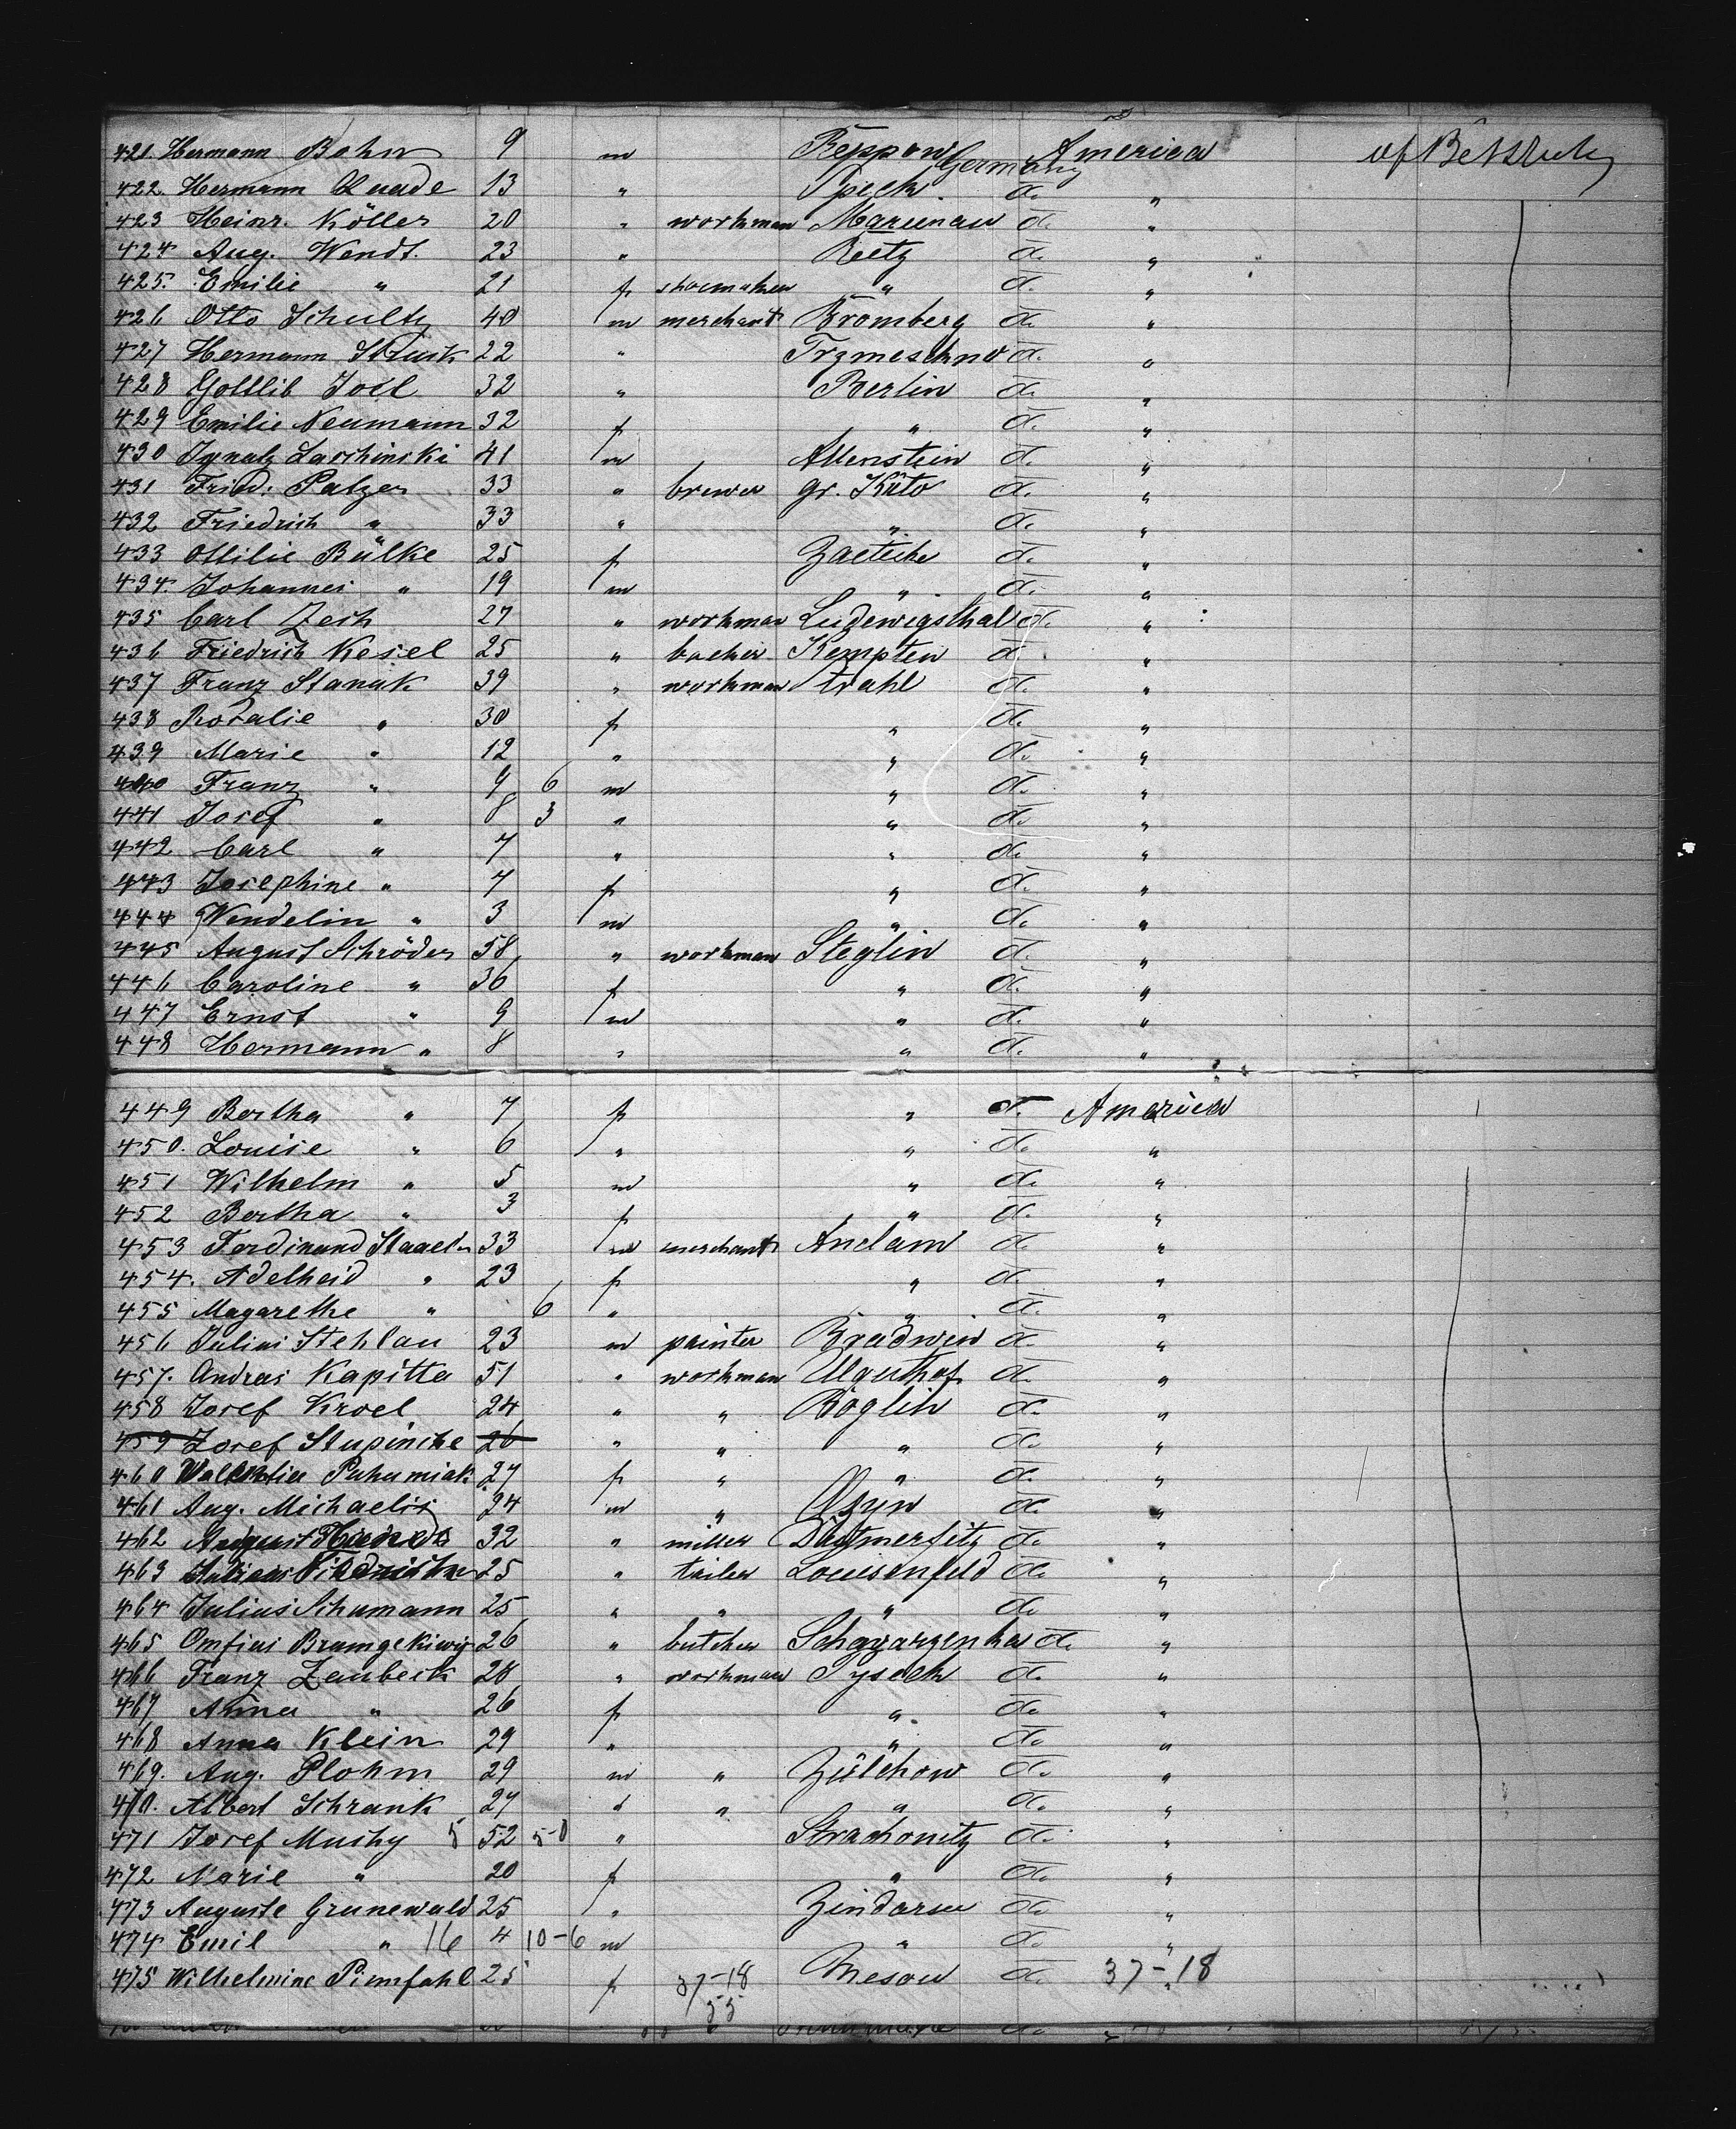 421. Hermann Bohn 9 m Reppow Germany America of Betstuly
422 Hermann Quade 13 " Speck d. "
423 Heinr. Köller 20 " workman Marienau d. "
424 Aug. Wendt. 23 " Reetz d. "
425. Emilie " 21 f shoemaker " d. "
426 Otto Schultz 40 m merchant Bromberg d. "
427 Hermann 22 " Trzmeschno d. "
428 Gottlib Joel 32 " Berlin d. "
429 Emilie Neumann 32 f " d. "
430 Ignatz Laschinski 41 m Allenstein d. "
431 Fried. Patzer 33 " brewer gr. Küto d. "
432 Friedrich " 33 " " d. "
433 Ottilie Bülke 25 f d. "
434. Johannes " 19 m " d. "
435 Carl Zech 27 " workman Ludewigsthal d. "
436 Friedrich Kesel 25 " backer Kempten d. "
437 Franz Stanak 39 " workman Strahl d. "
438 Rosalie " 30 f " d. "
439 Marie " 12 " " d. "
440 Franz " 9 6 m " d. "
441 Josef " 8 3 " " d. "
442 Carl " 7 " " d. "
443 Josephine " 7 f " d. "
444 Wendelin " 3 m " d. "
445 August Schröder 58 " workman Steglin d. "
446 Caroline " 36 f " d. "
447 Ernst " 9 m " d. "
448 Hermann " 8 " " d. "
449 Bertha " 7 f " d. America
450. Louise " 6 " " d. "
451 Wilhelm " 5 m " d. "
452 Bertha " 3 f " d. "
453 Ferdinand 33 m merchant Anclam d. "
454. Adelheid " 23 f " d. "
455 Magarethe " 6 " " d. "
456 Julius Stehlau 23 m painter Bradwin d. "
457. Andreas Kapitta 51 " workman d. "
458 Josef Kroel 24 " " Böglin d. "
459 Josef Stupinske 26 " " " d. "
460 27 f " " d. "
461 Aug. Michaelis 24 m " d. "
462 August 32 " miller d. "
463 Julius 25 " tailer Louisenfeld d. "
464 Julius Schumann 25 " " " d. "
465 26 " butcher d. "
466 Franz Zaubeck 28 " workman d. "
467 Anna " 26 f " d. "
468 Anna Klein 29 " " d. "
469. Aug. Plohm 29 m " Zülchow d. "
470. Albert Schrank 27 " " " d. "
471 Josef Mushy 5 52 5-0 " Strachonitz d. "
472 Marie " 20 f " d. "
473 Auguste Grunewald 25 " d. "
474 Emil " 16 4 10-6 m " d. "
475 Wilhelmine 25 f 37-18 Mesow d. " 37-18
55